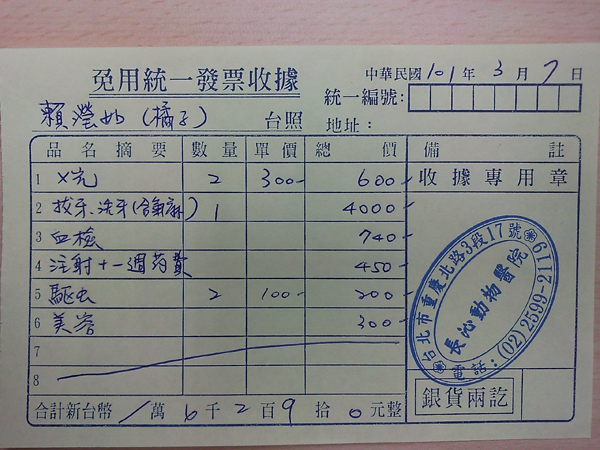 免用統一發票收據
中華民國101年3月7日
統一編號:
賴瀅如(橘子) 台照 地址:
品名摘要 數量 單價 總價 備註
1 X光 2 300- 600- 收據專用章
2 拔牙、洗牙(含氣麻) 1 4000-
3 血檢 740-
4 注射+一週药費 450-
5 驅虫 2 100- 200-
6 美容 300-
7
8
台北市重慶北路3段17號
長沁動物醫院
電話:(02)2599-2119
銀貨兩訖
合計新台幣 / 萬 6 千 2 百 9 拾 0 元整